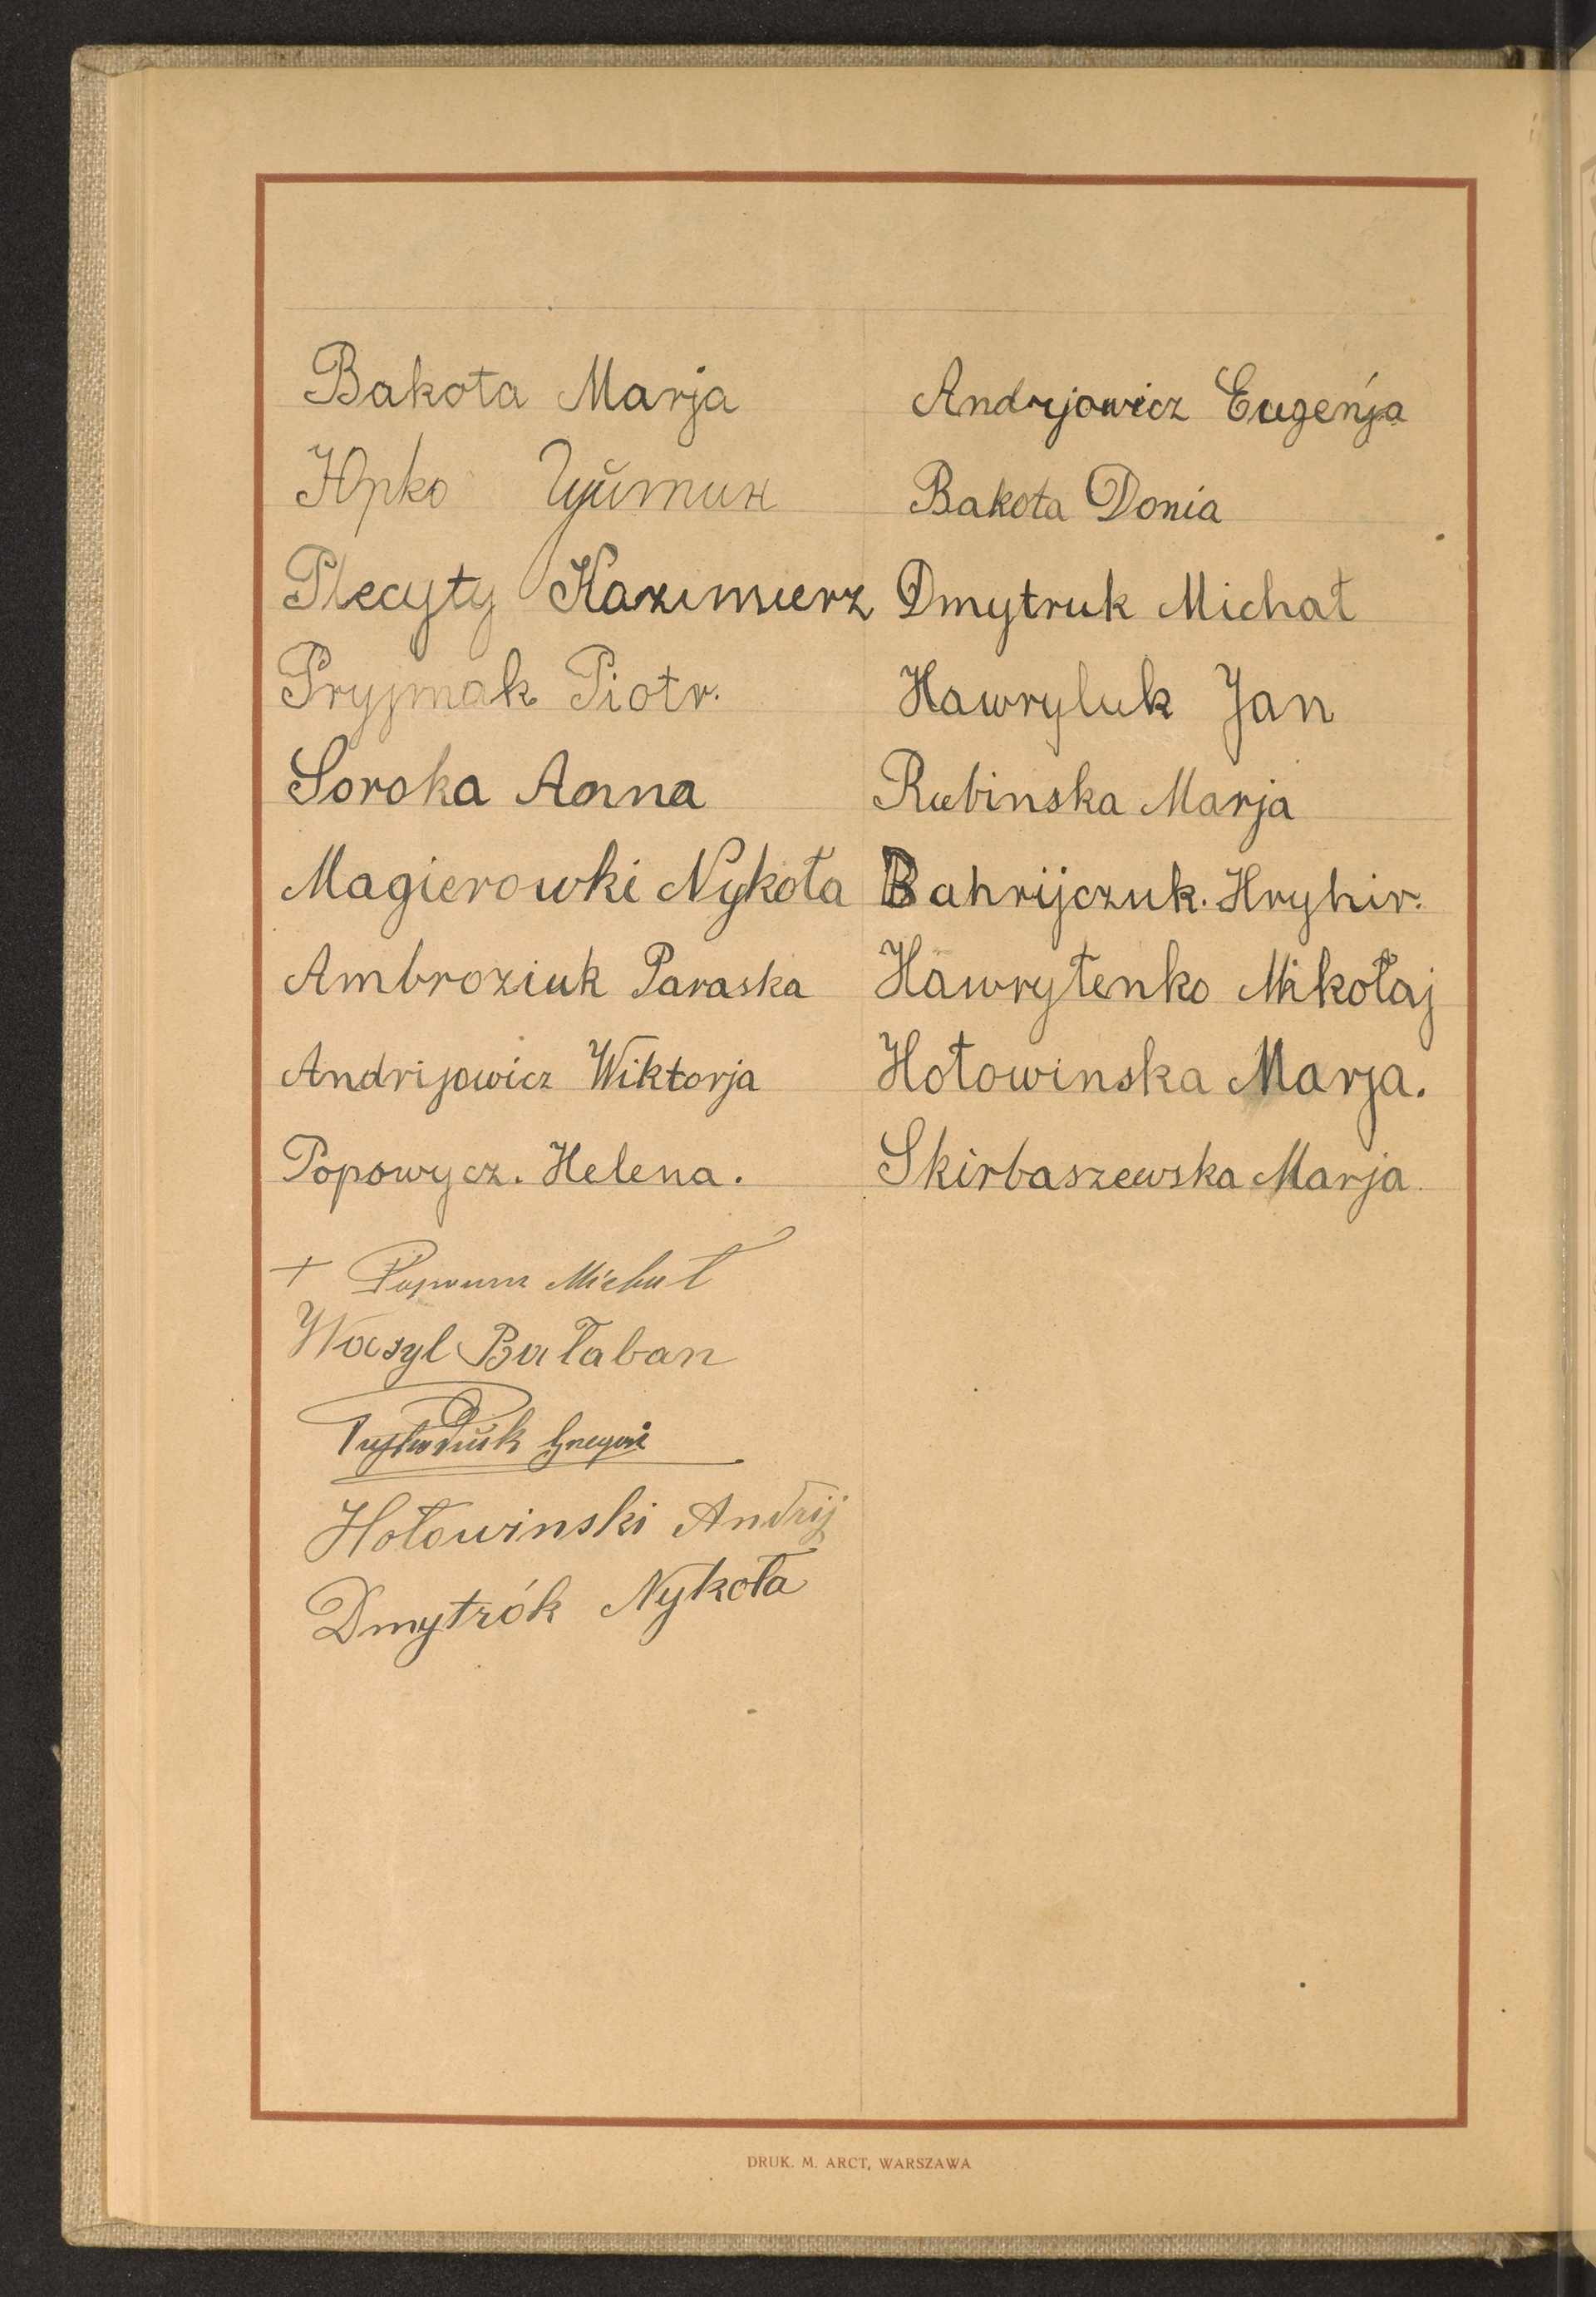 Bakota Marja
Юрко Цуйтик
Plecyty Kazimierz
Pryjmak Piotr.
Soroka Anna
Magierowki Nykoła
Ambroziuk Paraska
Andrijowicz Wiktorja
Popowycz. Helena.
+ Michał
Wasyl Bałaban
Hołowinski Andrij
Dmytrók Nykoła
Andryjowicz Eugeńja
Bakota Donia
Dmytruk Michał
Hawryluk Jan
Rubinska Marja
Bahrijczuk. Hryhir.
Hawryłenko Mikołaj
Hołowinska Marja.
Skirbaszewska Marja
DRUK. M. ARCT, WARSZAWA